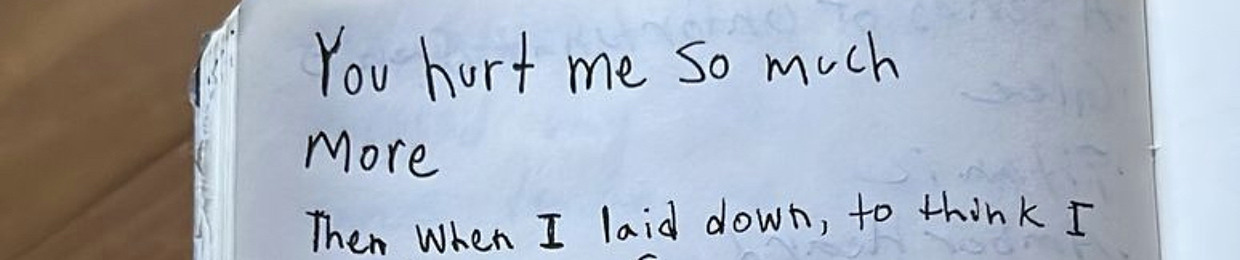 You hurt me so much
more
Then when I laid down, to think I